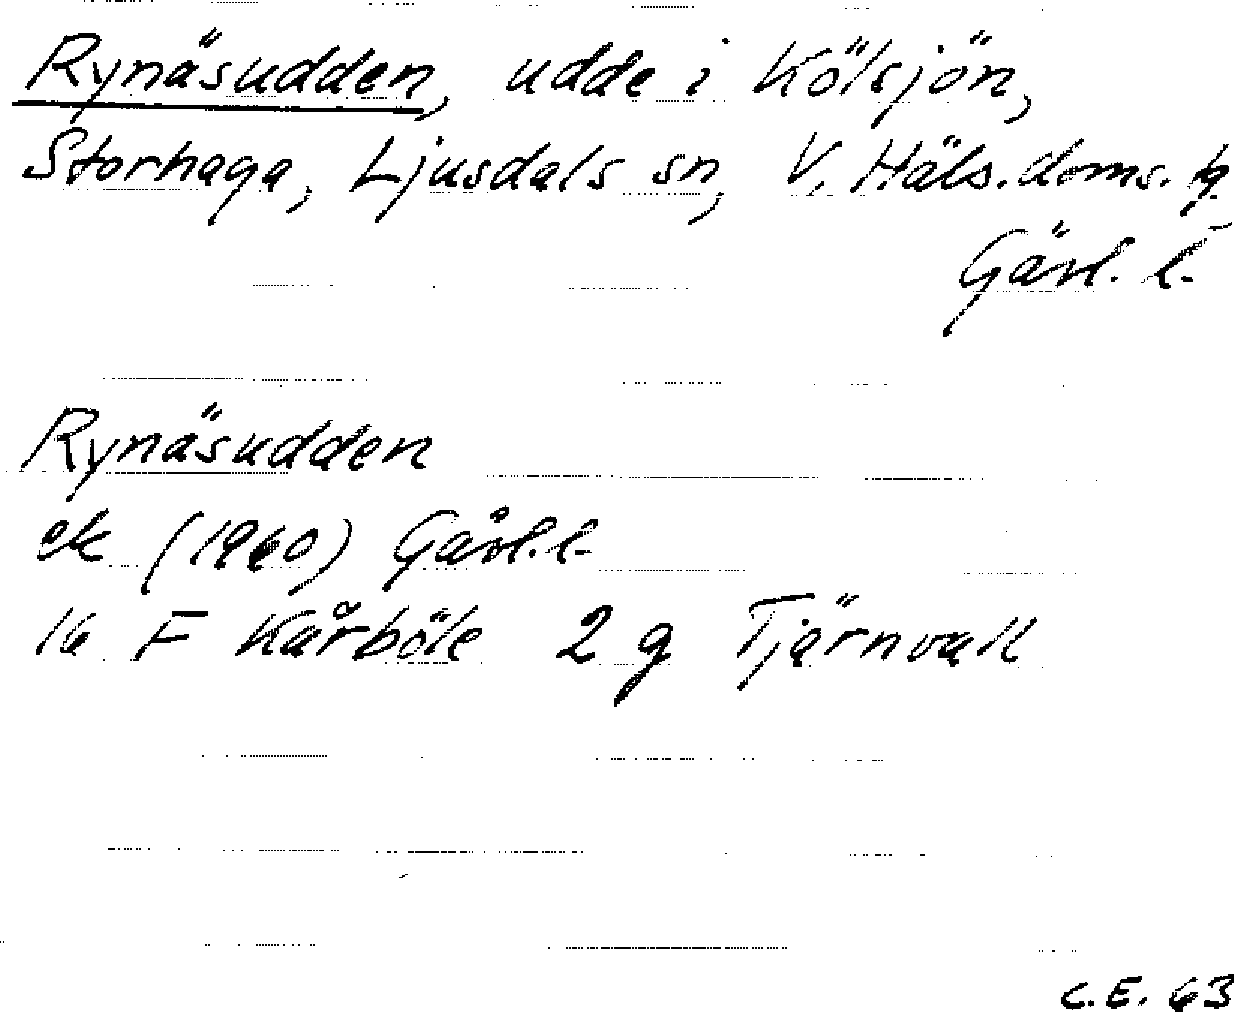 Rynäsudden, udde i Kölsjön,
Storhaga, Ljusdals sn, V. Häls. doms. tg.
Gävl. l.
Rynäsudden
ek (1960) Gävl. l.
16 F Kårböle 2 g Tjärnvall
C.E. 63